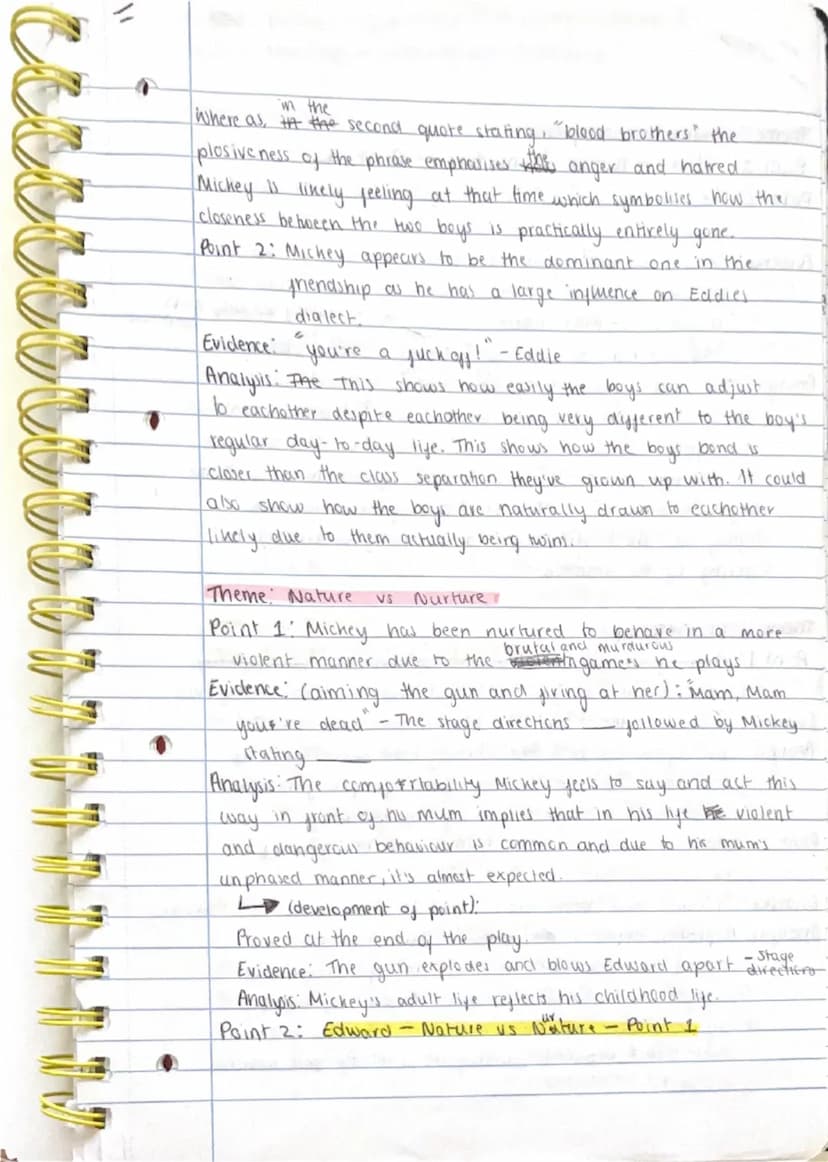 in the
Where as, in the second quote stating "blood brothers" the
plosiveness of the phrase emphasises the anger and hatred
Mickey is likely feeling at that time which symbolises how the
closeness between the two boys is practically entirely gone.
Point 2: Mickey appears to be the dominant one in the
friendship as he has a large influence on Eddies
dialect.
Evidence: "you're a fuck off!" - Eddie
Analysis: The This shows how easily the boys can adjust
to eachother despite eachother being very different to the boy's
regular day-to-day life. This shows how the boys bond is
closer than the class separation they've grown up with. It could
also show how the boys are naturally drawn to eachother
likely due to them actually being twins.
Theme: Nature vs Nurture
Point 1: Mickey has been nurtured to behave in a more
brutal and murdurous
violent manner due to the games he plays
Evidence: (aiming the gun and firing at her): "Mam, Mam
your're dead" - The stage directions ___ followed by Mickey
stating ___
Analysis: The comfortability Mickey feels to say and act this
way in front of his mum implies that in his life violent
and dangerous behaviour is common and due to his mum's
unphased manner, it's almost expected.
↳ (development of point):
Proved at the end of the play.
Evidence: The gun explodes and blows Edward apart - stage
direction
Analysis: Mickey's adult life reflects his childhood life.
Point 2: Edward - Nature vs Nurture - Point 1